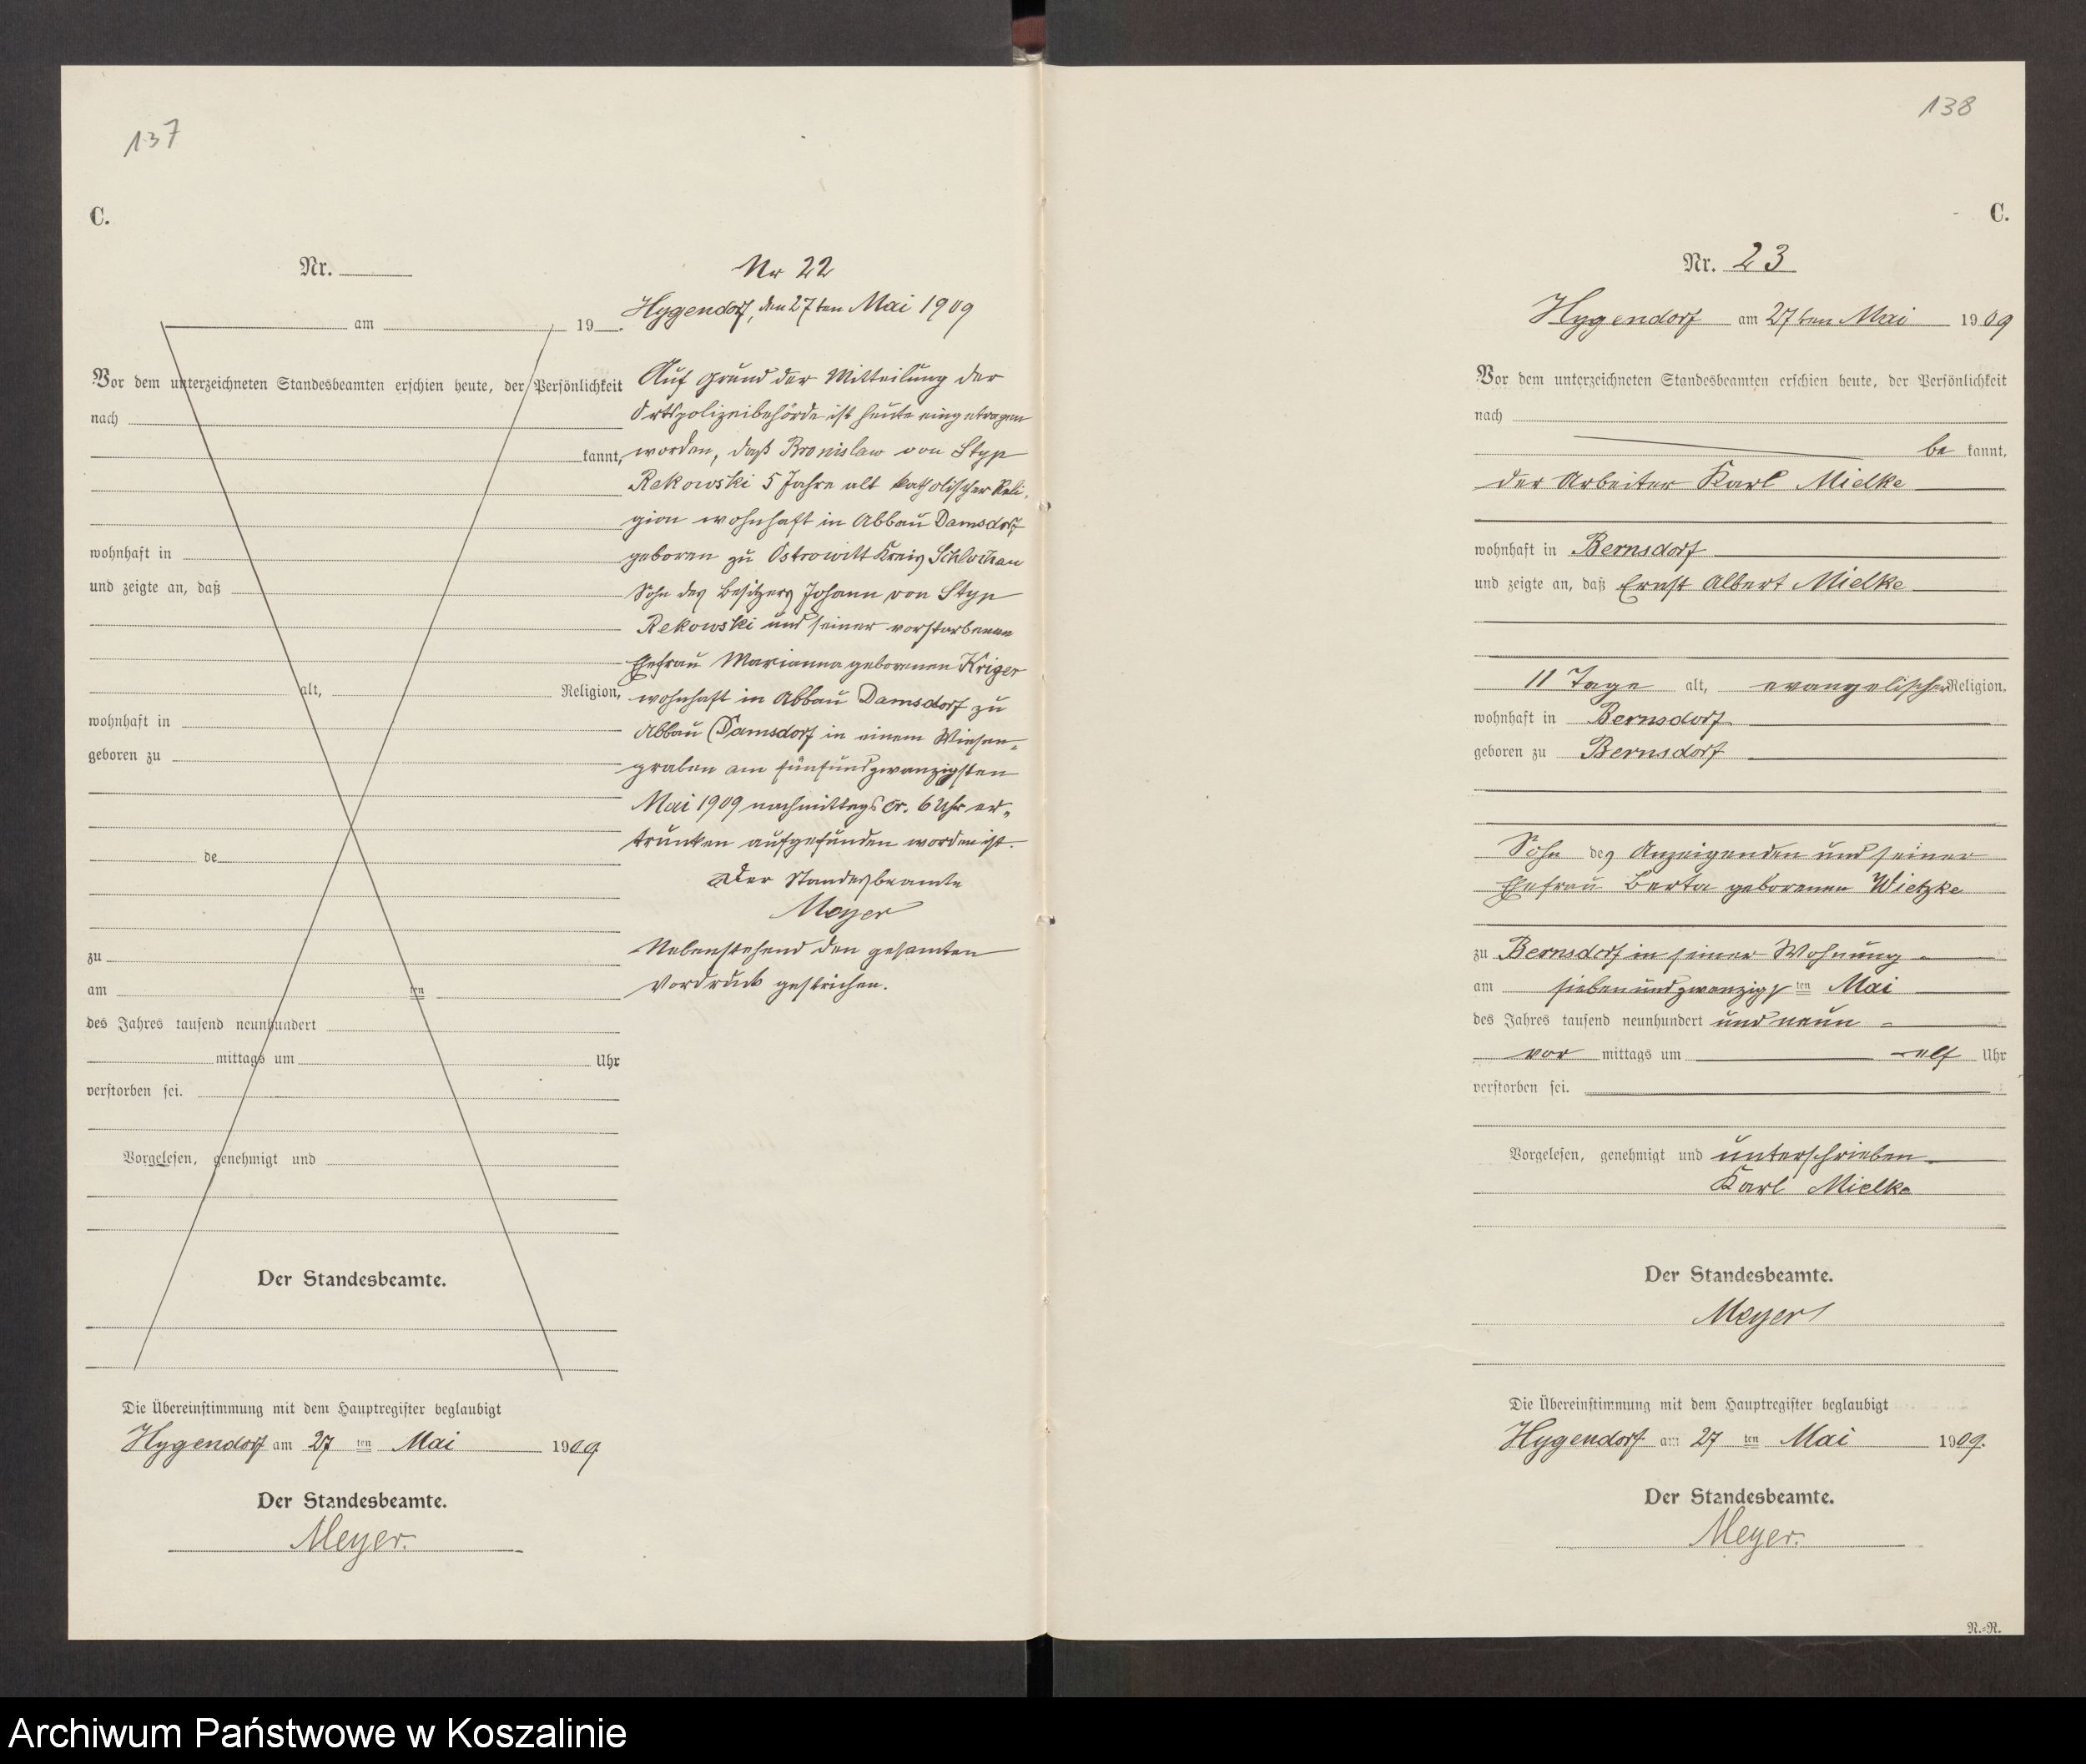 137
C.
Nr.
am 19
Vor dem unterzeichneten Standesbeamten erschien heute, der Persönlichkeit
nach
kannt,
wohnhaft in
und zeigte an, daß
alt, Religion,
wohnhaft in
geboren zu
de
zu
am ten
des Jahres tausend neunhundert
mittags um Uhr
verstorben sei.
Vorgelesen, genehmigt und
Der Standesbeamte.
Die Übereinstimmung mit dem Hauptregister beglaubigt
Hygendorf am 27 ten Mai 1909.
Der Standesbeamte.
Meyer.
Nr 22
Hygendorf, den 27ten Mai 1909
Auf Grund der Mitteilung der
Ortspolizeibehörde ist heute eingetragen
worden, daß Bronislaw von Styp
Rekowski 5 Jahre alt katholischer Reli-
gion wohnhaft in Abbau Damsdorf
geboren zu Ostrowitt Kreis Schlochau
Sohn des Besitzers Johann von Styp
Rekowski und seiner verstorbenen
Ehefrau Marianna geborenen Kriger
wohnhaft in Abbau Damsdorf zu
Abbau Damsdorf in einem Wiesen-
graben am fünfundzwanzigsten
Mai 1909 nachmittags cr. 6 Uhr er-
trunken aufgefunden worden ist.
Der Standesbeamte
Meyer
Nebenstehend den gesamten
Vordruck gestrichen.
138
C.
Nr. 23
Hygendorf am 27ten Mai 1909
Vor dem unterzeichneten Standesbeamten erschien heute, der Persönlichkeit
nach
be kannt,
der Arbeiter Karl Mielke
wohnhaft in Bernsdorf
und zeigte an, daß Ernst Albert Mielke
11 Tage alt, evangelischer Religion,
wohnhaft in Bernsdorf
geboren zu Bernsdorf
Sohn des Anzeigenden und seiner
Ehefrau Berta geborenen Wietzke
zu Bernsdorf in seiner Wohnung
am siebenundzwanzigs ten Mai
des Jahres tausend neunhundert und neun
vor mittags um elf Uhr
verstorben sei.
Vorgelesen, genehmigt und unterschrieben
Karl Mielke
Der Standesbeamte.
Meyer
Die Übereinstimmung mit dem Hauptregister beglaubigt
Hygendorf am 27 ten Mai 1909.
Der Standesbeamte.
Meyer.
N.-N.
Archiwum Państwowe w Koszalinie